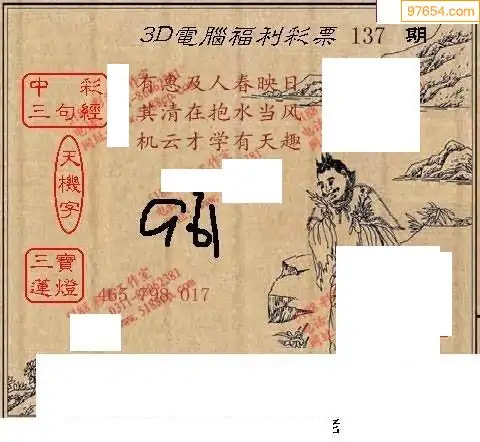 97654.com
3D電腦福利彩票 137 期
中彩
三句經
有惠及人春映日
萁清在抱水当风
机云才学有天趣
天機字
961
三寶
蓮燈
465 798 017